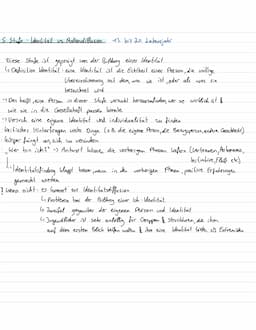 5. Stufe - Identität vs. Rollendiffusion → 13 bis 20. Lebensjahr
Diese Stufe ist geprägt von der Bildung einer Identität
↳ Definition Identität: eine Identität ist die Echtheit einer Person, die völlige
Übereinstimmung mit dem, was sie ist, oder als was sie
bezeichnet wird
→ Das heißt, eine Person in dieser Stufe versucht herauszufinden wer sie wirklich ist &
wie sie in die Gesellschaft passen könnte
→ Versuch eine eigene Identität und Individualität zu finden
kritisches Hinterfragen vieler Dinge (z.B. die eigene Person, die Bezugsperson, andere Geschlecht)
Körper fängt an sich zu verändern
"Wer bin ich?" → Antwort können die vorherigen Phasen liefern (Vertrauen, Autonomie,
Initiative, Fleiß etc.)
↳ Identitätsfindung klappt besser, wenn in den vorherigen Phasen positive Erfahrungen
gemacht wurden
? wenn nicht: es kommt zur Identitätsdiffusion
↳ Probleme bei der Bildung einer Ich Identität
↳ Zweifel gegenüber der eigenen Person und Identität
↳ Jugendlicher ist sehr anfällig für Gruppen & Strukturen, die ihm
auf dem ersten Blick helfen wollen & ihm eine Identität bieten als Extremisten